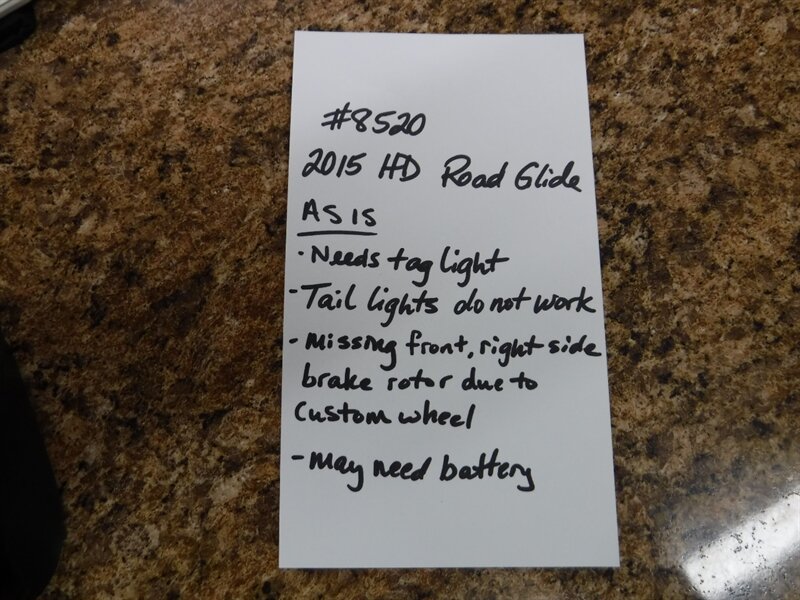 #8520
2015 HD Road Glide
AS IS
· Needs tag light
- Tail lights do not work
- Missing front, right side
brake rotor due to
Custom wheel
- May need battery